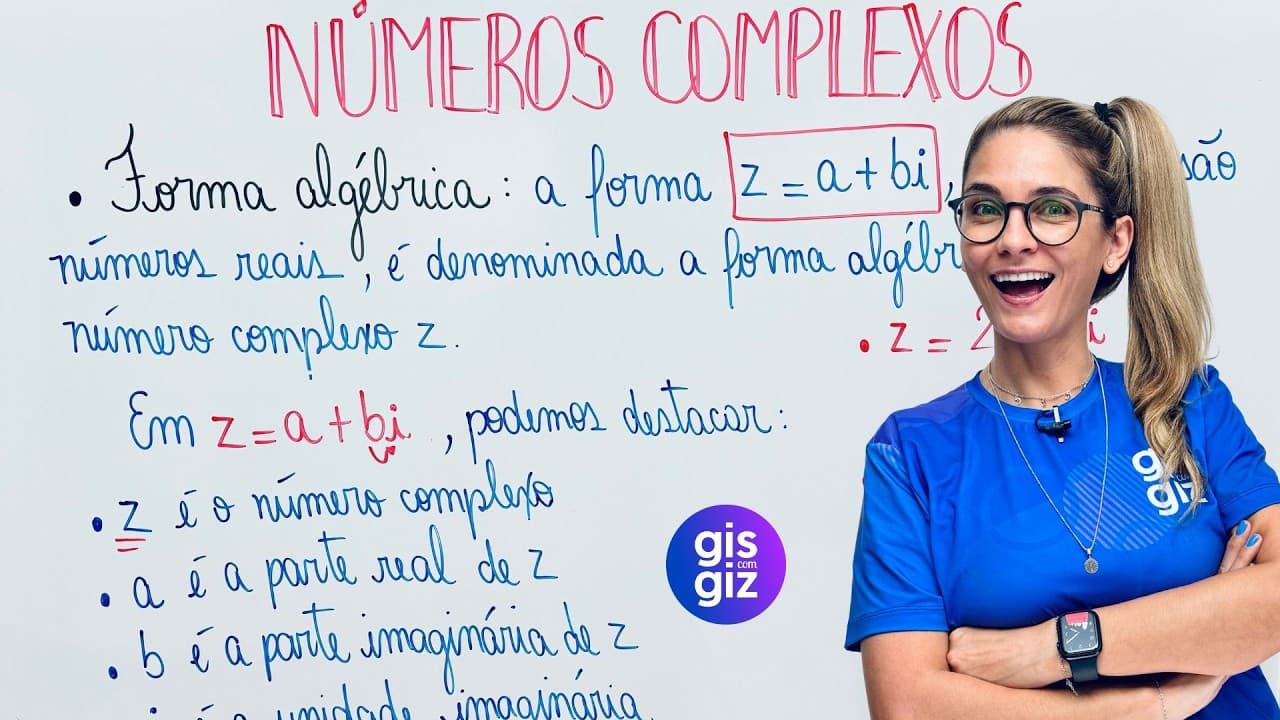 NÚMEROS COMPLEXOS
• Forma algébrica: a forma z = a + bi, são
números reais, é denominada a forma algébr
número complexo z.
• z = 2 i
Em z = a + bi, podemos destacar:
• z é o número complexo
• a é a parte real de z
• b é a parte imaginária de z
i é a unidade imaginária
gis
com
giz
g
com
giz